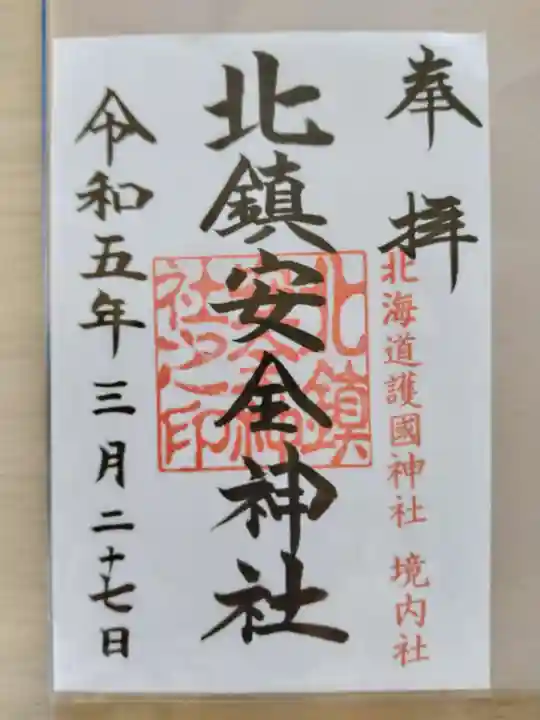 奉拝
北海道護國神社 境内社
北鎮安全神社
北鎮安全神社之印
令和五年三月二十七日